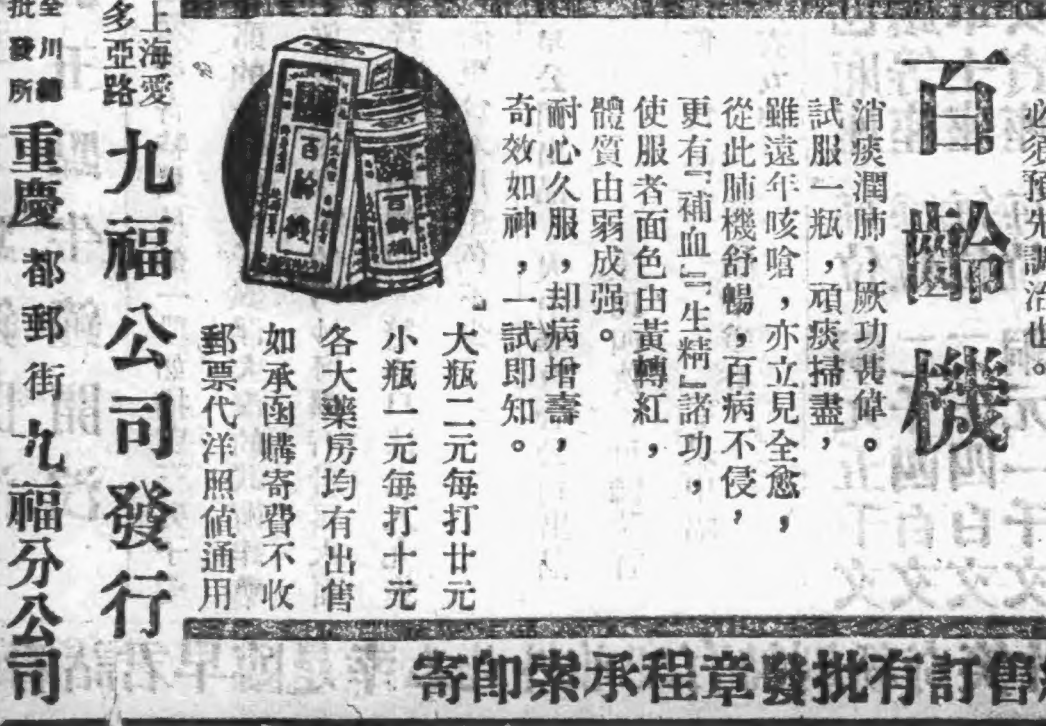 必須預先調治也。
百齡機
消痰潤肺，厥功甚偉。
試服一瓶，頑痰掃盡，
雖遠年咳嗆，亦立見全愈，
從此肺機舒暢，百病不侵，
更有『補血』『生精』諸功，
使服者面色由黃轉紅，
體質由弱成强。
耐心久服，却病增壽，
奇效如神，一試即知。
百齡機
百齡機
大瓶二元每打廿元
小瓶一元每打十元
各大藥房均有出售
如承函購寄費不收
郵票代洋照值通用
上海愛多亞路 九福公司發行
全川總批發所 重慶都郵街九福分公司
售訂有批發章程承索即寄